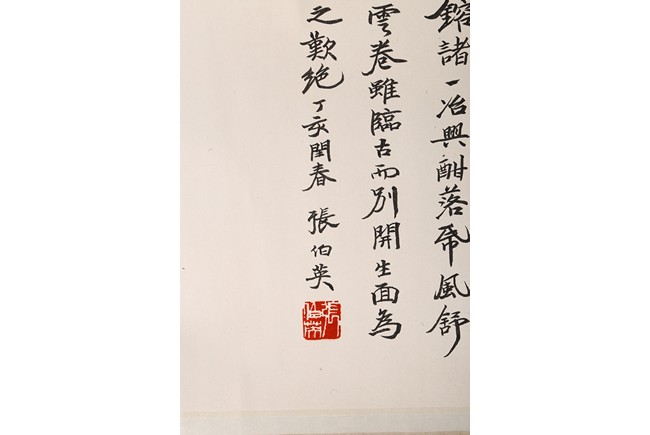 鎔諸一冶興酣落帋風舒
雲卷雖臨古而別開生面為
之歎絕丁亥閏春張伯英
張伯英